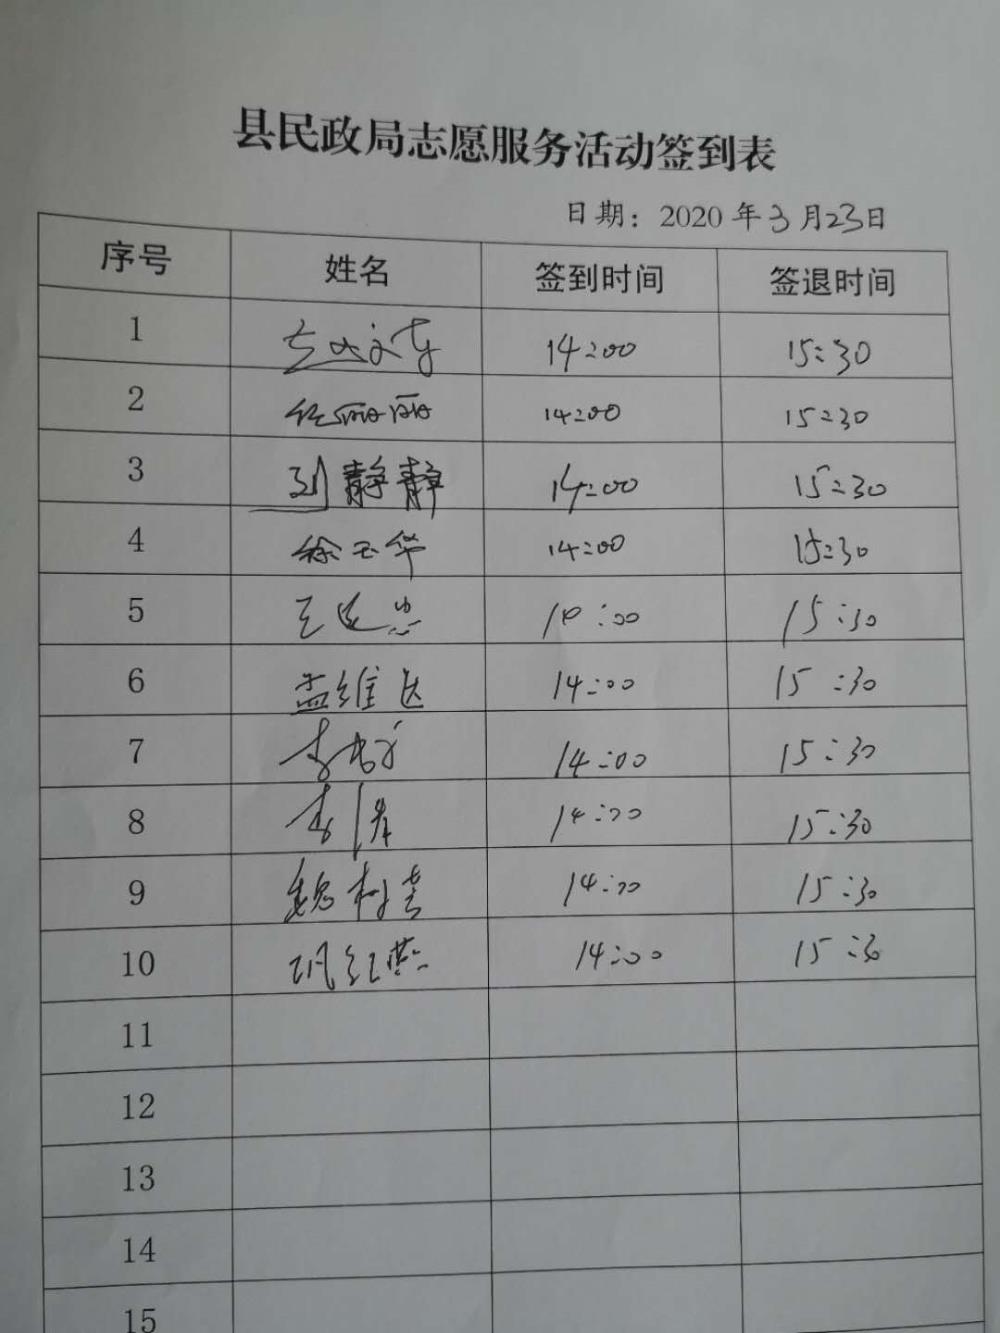 县民政局志愿服务活动签到表
日期：2020年3月23日
序号 姓名 签到时间 签退时间
1 14:00 15:30
2 任丽丽 14:00 15:30
3 刘静静 14:00 15:30
4 徐玉华 14:00 15:30
5 14:00 15:30
6 孟维达 14:00 15:30
7 14:00 15:30
8 14:00 15:30
9 14:00 15:30
10 14:00 15:30
11
12
13
14
15